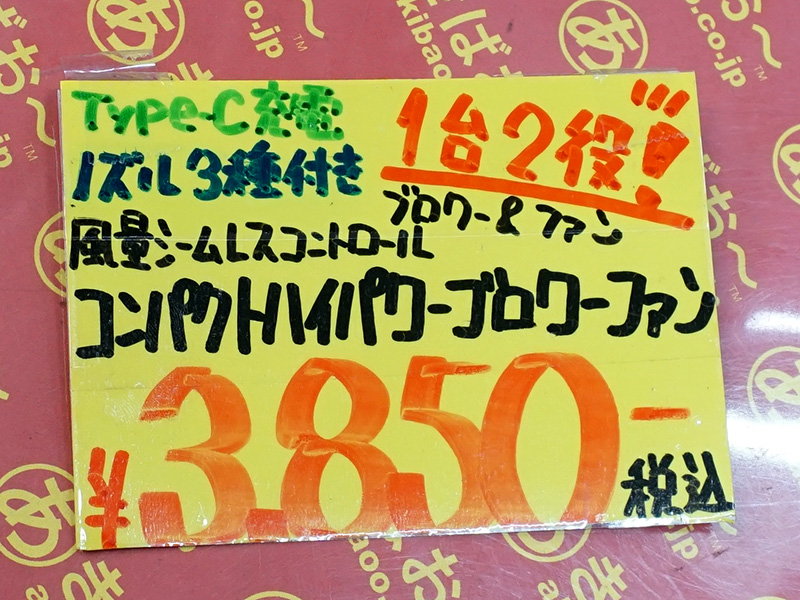 Type-C充電
ノズル3種付き
1台2役!!!
ブロワー&ファン
風量シームレスコントロール
コンパクトハイパワーブロワーファン
¥3,850-
税込